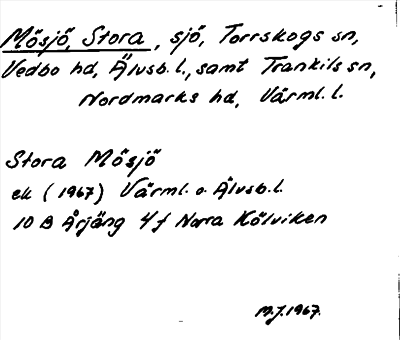 Mösjö, Stora, sjö, Torrskogs sn,
Vedbo hd, Älvsb. l., samt Trankils sn,
Nordmarks hd, Värml. l.
Stora Mösjö
ek (1967) Värml. o. Älvsb. l.
10 B Årjäng 4f Norra Kölviken
M.J. 1967.